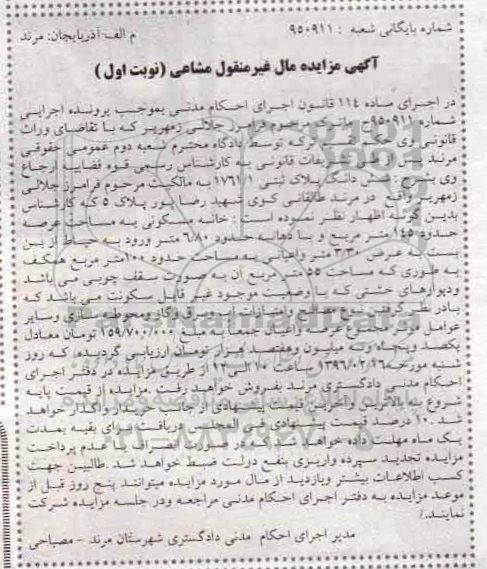 شماره بایگانی شعبه : ۹۵۰۹۱۱ م الف آذربایجان: مرند
آگهی مزایده مال غیرمنقول مشاعی (نوبت اول)
در اجرای ماده ۱۱۴ قانون اجرای احکام مدنی بموجب پرونده اجرایی
شماره ۹۵۰۹۱۱ ماترک مرحوم فرامرز جلالی زمهریر که با تقاضای وراث
قانونی وی حکم تقسیم ترکه توسط دادگاه محترم شعبه دوم عمومی حقوقی
مرند پس از طی تشریفات قانونی به کارشناس رسمی قوه قضاییه ارجاع
وی بشرح : شش دانگ پلاک ثبتی ۱۷۶۱/۱ به مالکیت مرحوم فرامرز جلالی
زمهریر واقع در مرند طالقانی کوی شهید رضا پور پلاک ۵ که کارشناس
بدین گونه اظهار نظر نموده است : خانه مسکونی به مساحت عرصه
حدود ۱۴۵ متر مربع و با دهانه حدود ۶/۸۰ متر ورود به حیاط از بن
بست به عرض ۳/۳۰ متر واعیانی به مساحت حدود ۱۰۰ متر مربع همکف
به طوری که مساحت ۵۵ متر مربع آن به صورت سقف چوبی می باشد
ودیوارهای خشتی که با وضعیت موجود غیر قابل سکونت می باشد که
بادر نظر گرفتن نوع مصالح وامتیازات آب وبرق وگاز ومحوطه سازی وسایر
عوامل موثر مجموع عرصه واعیان جمعا به مبلغ ۱۵۹/۷۰۰/۰۰۰ تومان معادل
یکصد وپنجاه ونه میلیون وهفتصد هزار تومان ارزیابی گردیده، که روز
شنبه مورخه ۱۳۹۶/۰۲/۱۶ ساعت ۱۰ الی ۱۲ از طریق مزایده در دفتر اجرای
احکام مدنی دادگستری مرند بفروش خواهد رفت .مزایده از قیمت پایه
شروع به بالاترین وآخرین قیمت پیشنهادی از جانب خریدار واگذار خواهد
شد .۱۰ درصد قیمت پیشنهادی فی المجلس دریافت وبرای بقیه بمدت
یک ماه مهلت داده خواهد شد که در صورت انصراف یا عدم پرداخت
مزایده تجدید سپرده واریزی بنفع دولت ضبط خواهد شد .طالبین جهت
کسب اطلاعات بیشتر وبازدید از مال مورد مزایده میتوانند پنج روز قبل از
موعد مزایده به دفتر اجرای احکام مدنی مراجعه ودر جلسه مزایده شرکت
نمایند./
مدیر اجرای احکام مدنی دادگستری شهرستان مرند – مصباحی